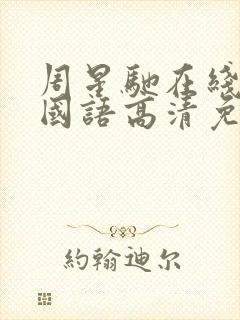 周星馳在綫
國語高清免
約翰迪尔